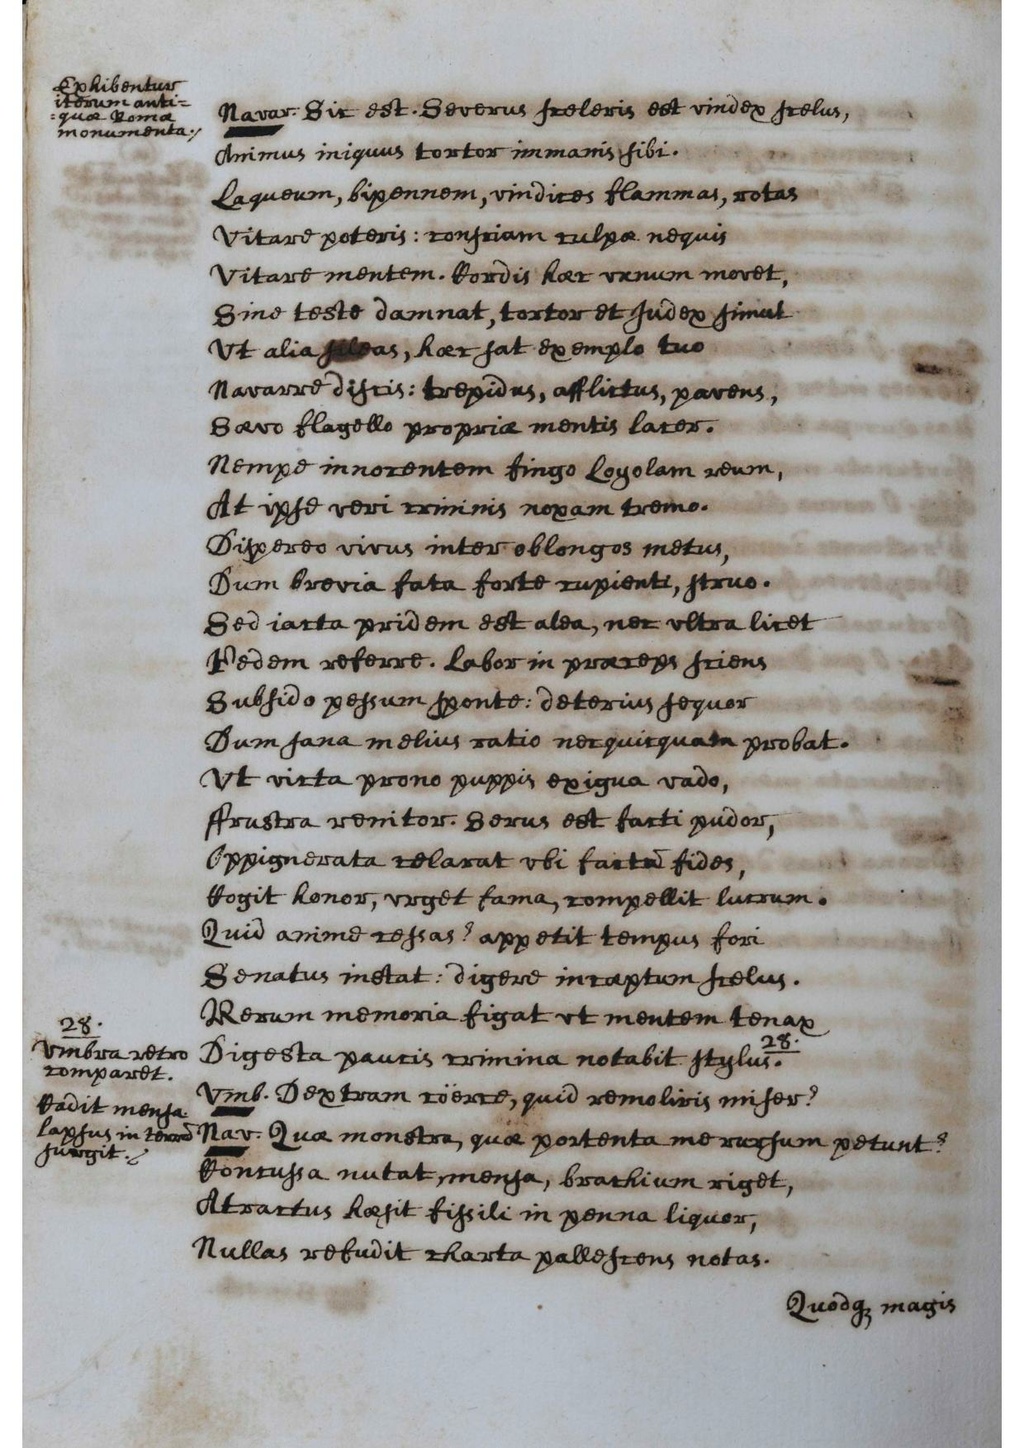 Exhibentur
iterum anti=
:quæ Romæ
monumenta./
Navar. Sic est. Severus sceleris est vindex scelus,
Animus iniquus tortor immanis sibi.
Laqueum, bipennem, vindices flammas, rotas
Vitare poteris: consciam culpæ nequis
Vitare mentem. Cordis hæc urnum movet,
Sine teste damnat, tortor et Judex simul
Ut alia sileas, hæc sat exemplo tuo
Navarre discis: trepidus, afflictus, pavens,
Sævo flagello propriæ mentis lacer.
Nempe innocentem fingo Loyolam reum,
At ipse veri criminis noxam tremo.
Dispereo vivus inter oblongos metus,
Dum brevia fata forte cupienti, struo.
Sed iacta pridem est alea, nec ultra licet
Pedem referre. Labor in præceps sciens
Subsido pessum sponte: deterius sequor
Dum sana melius ratio necquicquam probat.
Ut victa prono puppis exigua vado,
ffrustra renitor. Serus est facti pudor,
Oppignerata celarat ubi factū fides,
Cogit honor, urget fama, compellit lucrum.
Quid anime cessas? appetit tempus fori
Senatus instat: digere incæptum scelus.
Rerum memoria figat ut mentem tenax
Digesta paucis crimina notabit stylus. 28.
28.
Umbra retro
comparet.
Umb. Dextram cöerce, quid remoliris miser?
Cadit mensa
lapsus in terrā
surgit./
Nav. Quæ monstra, quæ portenta me rursum petunt?
Concussa nutat, mensa, brachium riget,
Atractus hæsit fissili in penna liquor,
Nullas refudit charta pallescens notas.
Quodq; magis